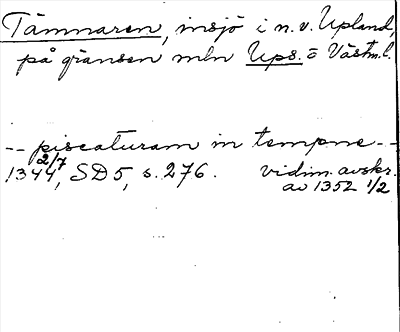 Tämnaren, insjö i n.v. Upland,
på gränsen mln Ups. o Västm.l.
-- piscaturam in tempne --
1344 2/7, SD 5, s. 276. vidim. avskr.
av 1352 1/2